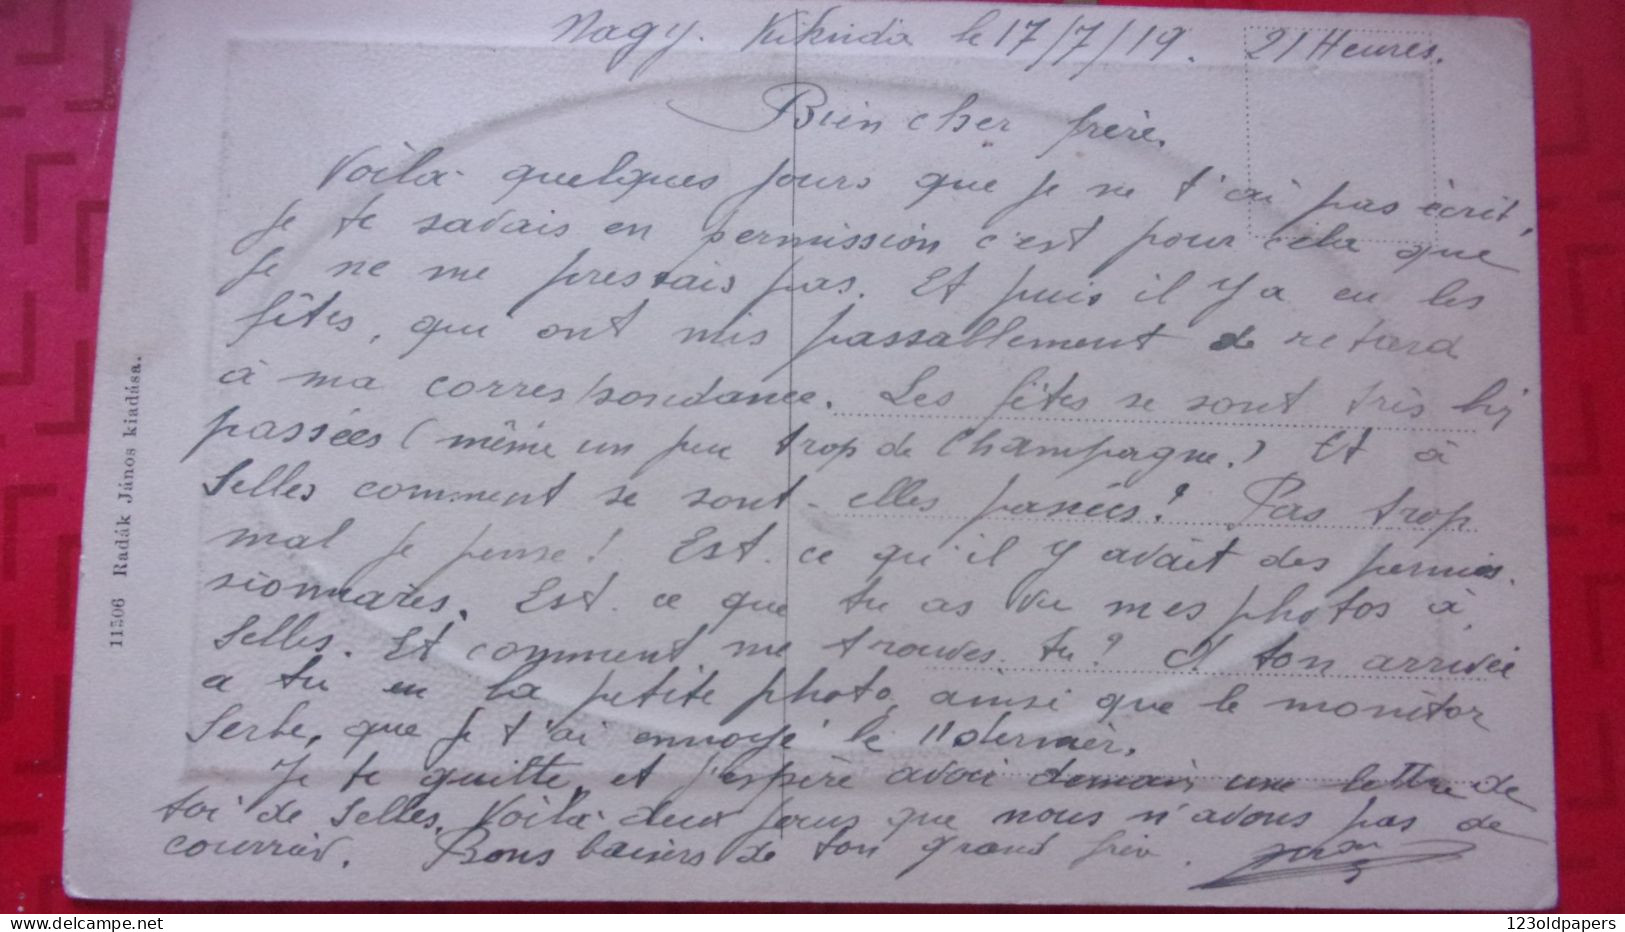 Nagy. Kikinda le 17/7/19. 21 Heures.
Bien cher frère.
Voilà quelques jours que je ne t'ai pas écrit,
je te savais en permission c'est pour cela que
je ne me pressais pas. Et puis il y a eu les
fêtes, qui ont mis passablement de retard
à ma correspondance. Les fêtes se sont très
passées (même un peu trop de Champagne.) Et à
Selles comment se sont-elles passées? Pas trop
mal je pense! Est-ce qu'il y avait des permis.
sionnaires. Est-ce que tu as vu mes photos à
Selles. Et comment me trouves-tu? A ton arrivée
a tu eu la petite photo, ainsi que le monitor
Serbe, que je t'ai envoyé le 11 dernier.
Je te quitte et j'espère avoir demain une lettre de
toi de Selles. Voilà deux jours que nous n'avons pas de
courrier. Bons baisers de ton grand
11506 Radák János kiadása.
123oldpapers